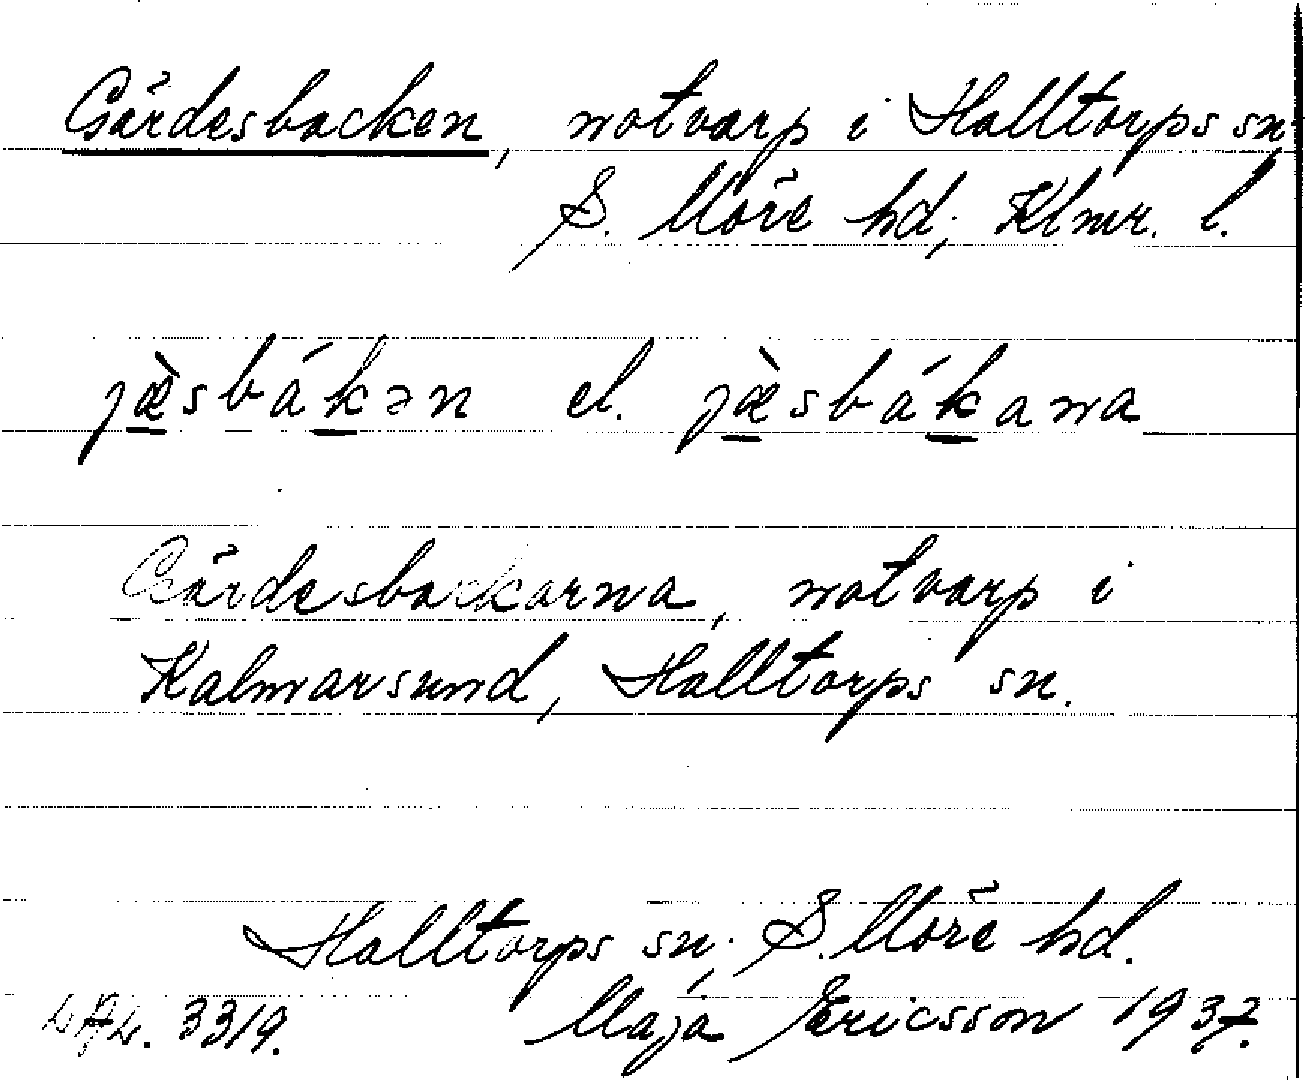 Gärdesbacken, notvarp i Halltorps sn,
S. Möre hd, Klmr. l.
jæ̀sbákən el. jæ̀sbákana
Gärdesbackarna, notvarp i
Kalmarsund, Halltorps sn.
Halltorps sn. S. Möre hd.
3319. Maja Ericsson 1937.